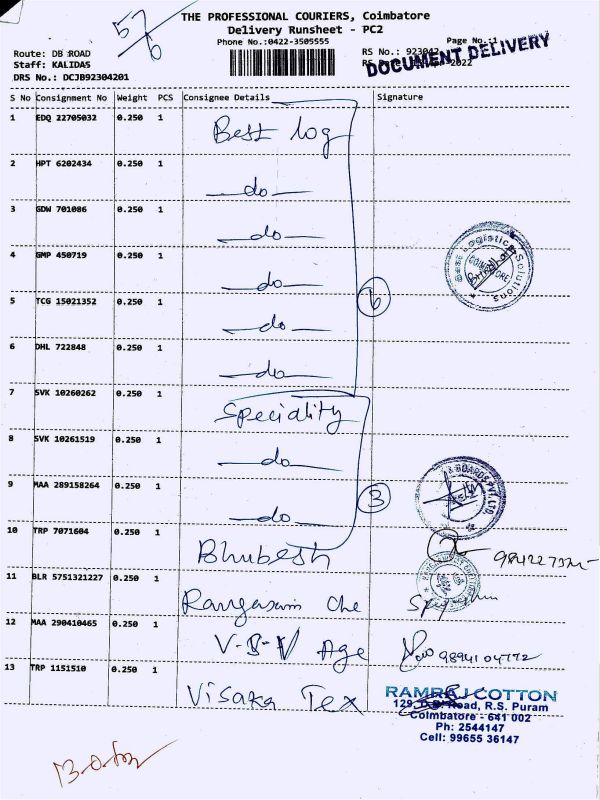 57/6
THE PROFESSIONAL COURIERS, Coimbatore
Delivery Runsheet - PC2
Phone No.:0422-3505555
Page No.:1
Route: DB ROAD
RS No.: 923042
Staff: KALIDAS
2022
DOCUMENT DELIVERY
DRS No.: DCJB92304201
S No Consignment No Weight PCS Consignee Details Signature
1 EDQ 22705032 0.250 1 Best log
2 HPT 6202434 0.250 1 do
3 GDW 701086 0.250 1 do
4 GMP 450719 0.250 1 do
Best Logistics Solutions
COIMBATORE
5 TCG 15021352 0.250 1 do
6
6 DHL 722848 0.250 1 do
7 SVK 10260262 0.250 1 Speciality
8 SVK 10261519 0.250 1 do
9 MAA 289158264 0.250 1 do
3
& BOARDS PVT. LTD.
10 TRP 7071604 0.250 1 Bhubesh
11 BLR 5751321227 0.250 1 Rangasami Che
12 MAA 290410465 0.250 1 V-B-V Age
9894104772
13 TRP 1151510 0.250 1 Visaka Tex
RAMRAJ COTTON
129, D.B. Road, R.S. Puram
Coimbatore - 641 002
Ph: 2544147
Cell: 99655 36147